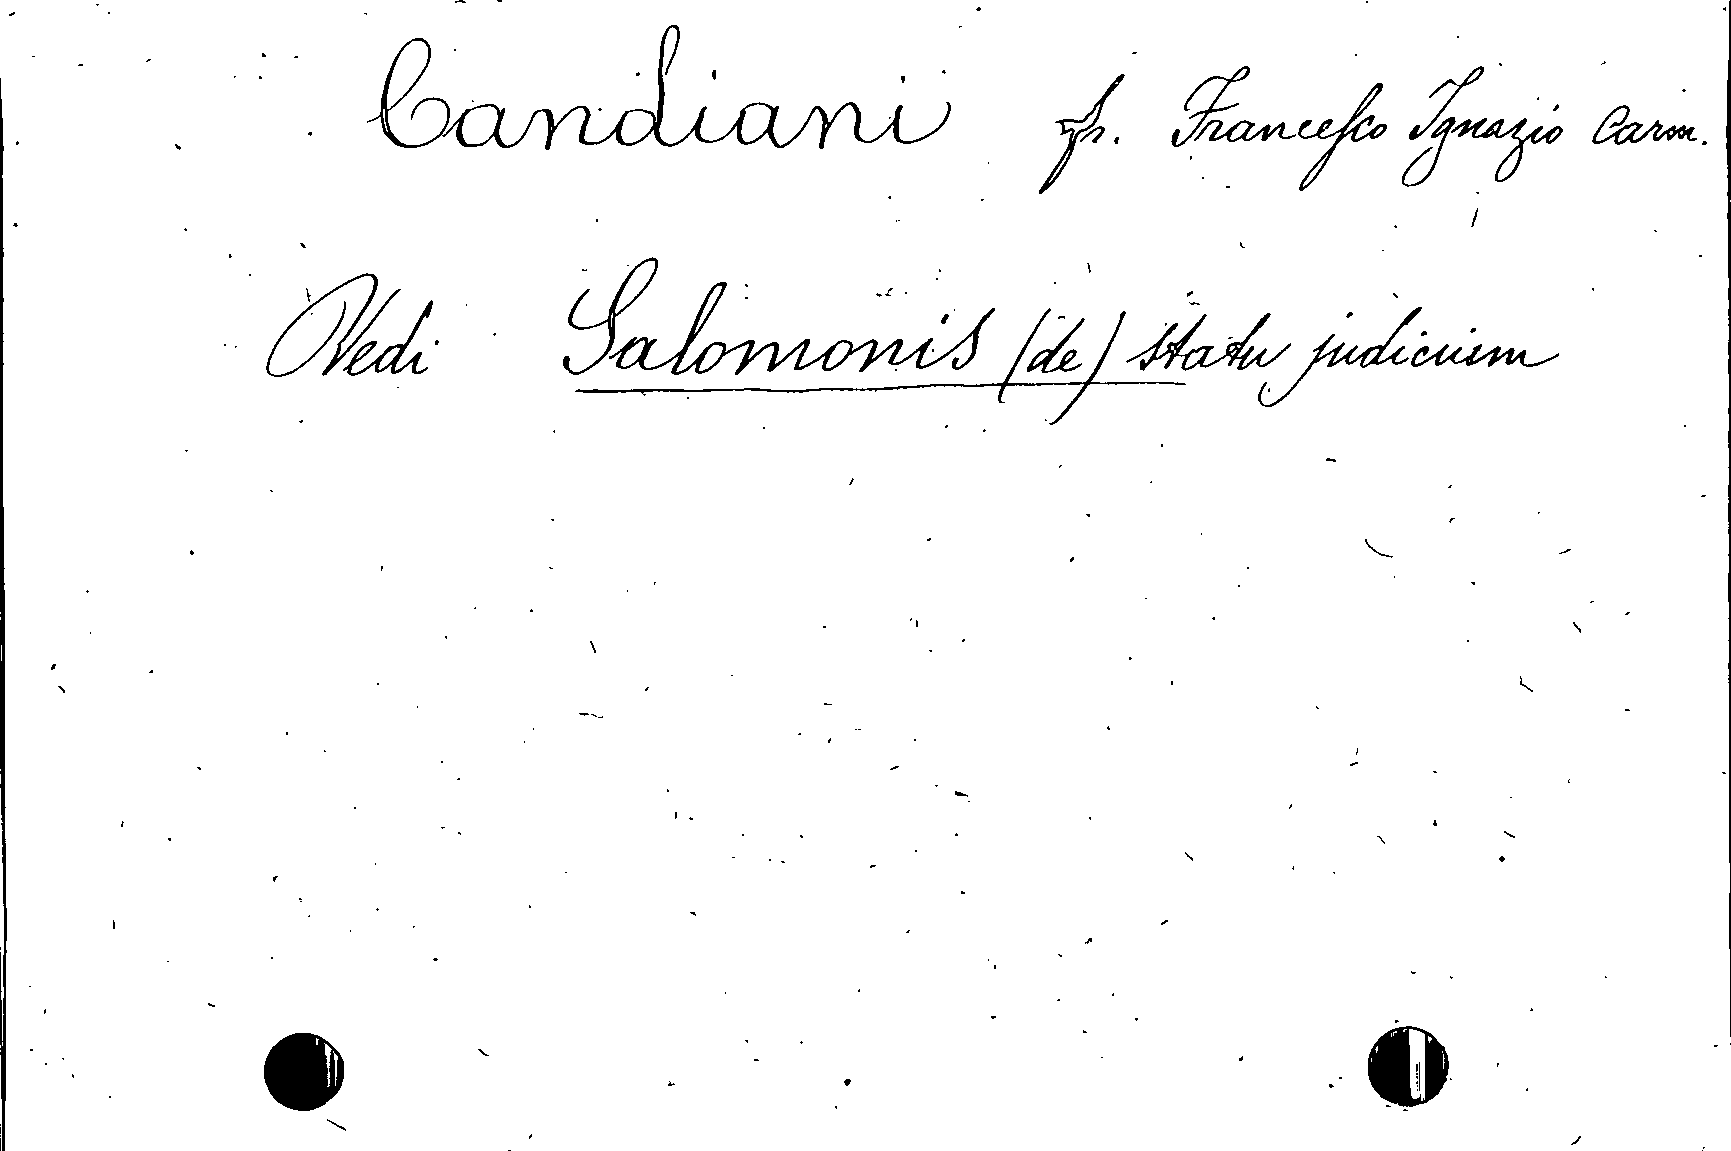 Candiani fr. Francesco Ignazio Carm.
Vedi Salomonis (de) statu judicium